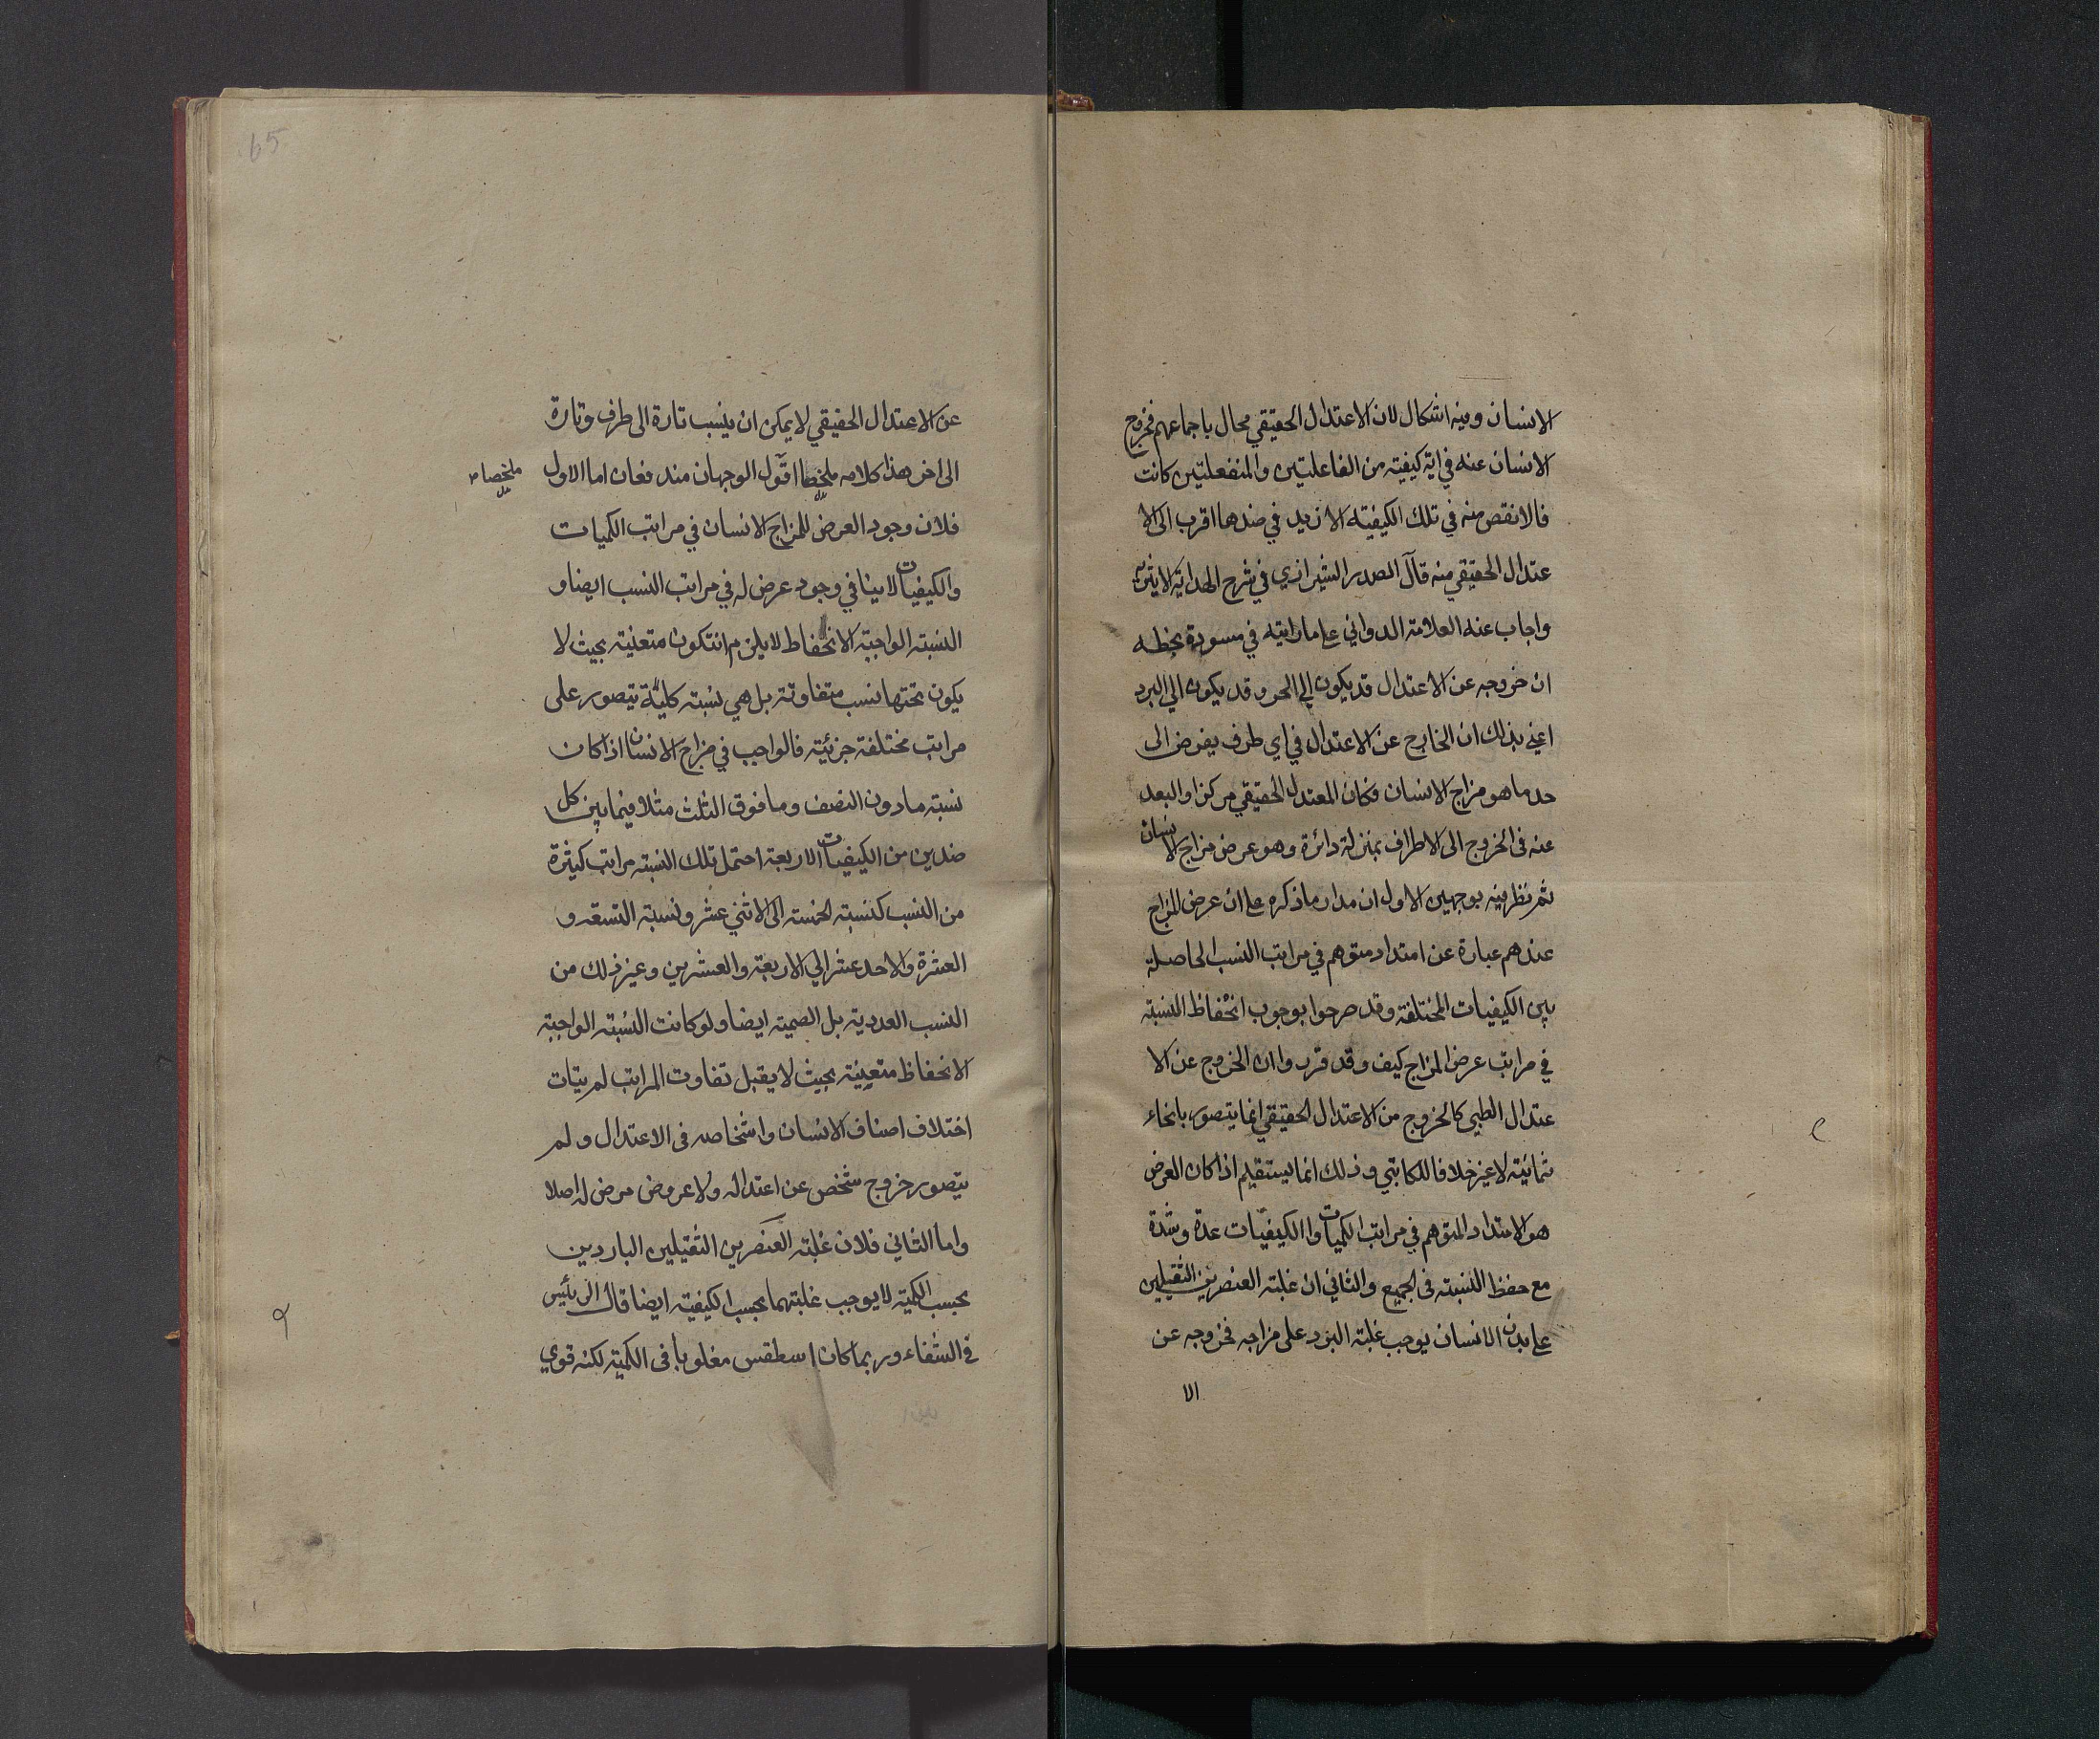 الانسان وفيه اشكال لان الاعتدال الحقيقي محال باجماعهم فخروج
الانسان عنه في اية كيفيته من الفاعلتين والمنفعلتين كانت
فالانقص منه في تلك الكيفيته الازيد في ضدها اقرب الى الا
عتدال الحقيقي منه قال الصدر الشيرازي في شرح الهداية الاثيريه
واجاب عنه العلامة الدواني على ما رايته في مسودة بخطه
ان خروجه عن الاعتدال قد يكون الى الحر وقد يكون الي البرد
اعني بذلك ان الخارج عن الاعتدال في اي طرف يفرض الى
حد ما هو مزاج الانسان فكان المعتدل الحقيقي مركزا والبعد
عنه في الخروج الى الاطراف بمنزلة دائرة وهو عرض مزاج الانسان
ثم نظر فيه بوجهين الاول ان مدار ما ذكره على ان عرض المزاج
عندهم عبارة عن امتداد متوهم في مراتب النسب الحاصلة
بين الكيفيات المختلفة وقد صرحوا بوجوب انحفاظ النسبته
في مراتب عرض المزاج كيف وقد قرروا ان الخروج عن الا
عتدال الطبي كالخروج من الاعتدال الحقيقي انما يتصور بانحاء
ثمانيته لا غير خلافا للكاتبي وذلك انما يستقيم اذا كان العرض
هو الامتداد المتوهم في مراتب الكميات والكيفيّات عدة وشدة
مع حفظ النسبته في الجميع والثاني ان غلبته العنصرين الثقيلين
على بدن الانسان يوجب غلبته البرد على مزاجه فخروجه عن
الا
65
عن الاعتدال الحقيقي لا يمكن ان ينسب تارة الى طرف وتارة
الى اخر هذا كلامه ملخصا اقول الوجهان مندفعان اما الاول
ملخصا
فلان وجود العرض للمزاج الانسان في مراتب الكميات
والكيفيات لا ينافي وجود عرض له في مراتب النسب ايضا و
النسبته الواجبة الانحفاظ لا يلزم ان تكون متعنيته بحيث لا
يكون تحتها نسب متفاوته بل هي نسبته كليّة يتصور على
مراتب مختلفة جزئيته فالواجب في مزاج الانسان اذا كان
نسبته ما دون النصف وما فوق الثلث مثلا فيما بين كل
ضدين من الكيفيات الاربعة احتمل تلك النسبته مراتب كثيرة
من النسب كنسبته الخمسة الى الاثني عشر ونسبته التسعه و
العشرة والاحد عشر الي الاربعة والعشرين وغير ذلك من
النسب العددية بل الصميته ايضا ولو كانت النسبته الواجبة
الانحفاظ متعينته بحيث لا يقبل تفاوت المراتب لم يتات
اختلاف اصناف الانسان واشخاصه في الاعتدال ولم
يتصور خروج شخص عن اعتداله ولا عروض مرض له اصلا
واما الثاني فلان غلبته العنصرين الثقيلين الباردين
بحسب الكميته لا يوجب غلبتهما بحسب الكيفيته ايضا قال الرئيس
في الشفاء وربما كان اسطقس مغلوبا في الكميته لكنه قوي